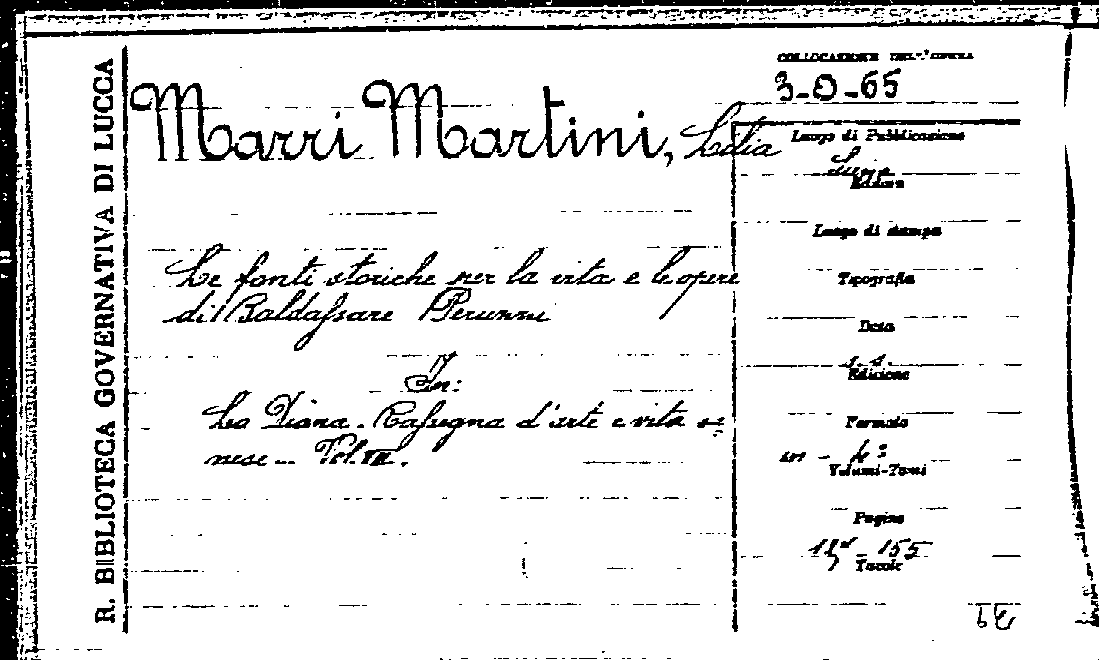 R. BIBLIOTECA GOVERNATIVA DI LUCCA
COLLOCAZIONE DELL'OPERA
3-D-65
Marri Martini, Lilia
Luogo di Pubblicazione
Siena
Editore
Luogo di stampa
Le fonti storiche per la vita e le opere
di Baldassare Peruzzi
Tipografia
Data
s.a.
Edizione
In:
La Diana. Rassegna d'arte e vita se
nese -. Vol.
Formato
in - 4º
Volumi-Tomi
Pagine
- 155
Tavole